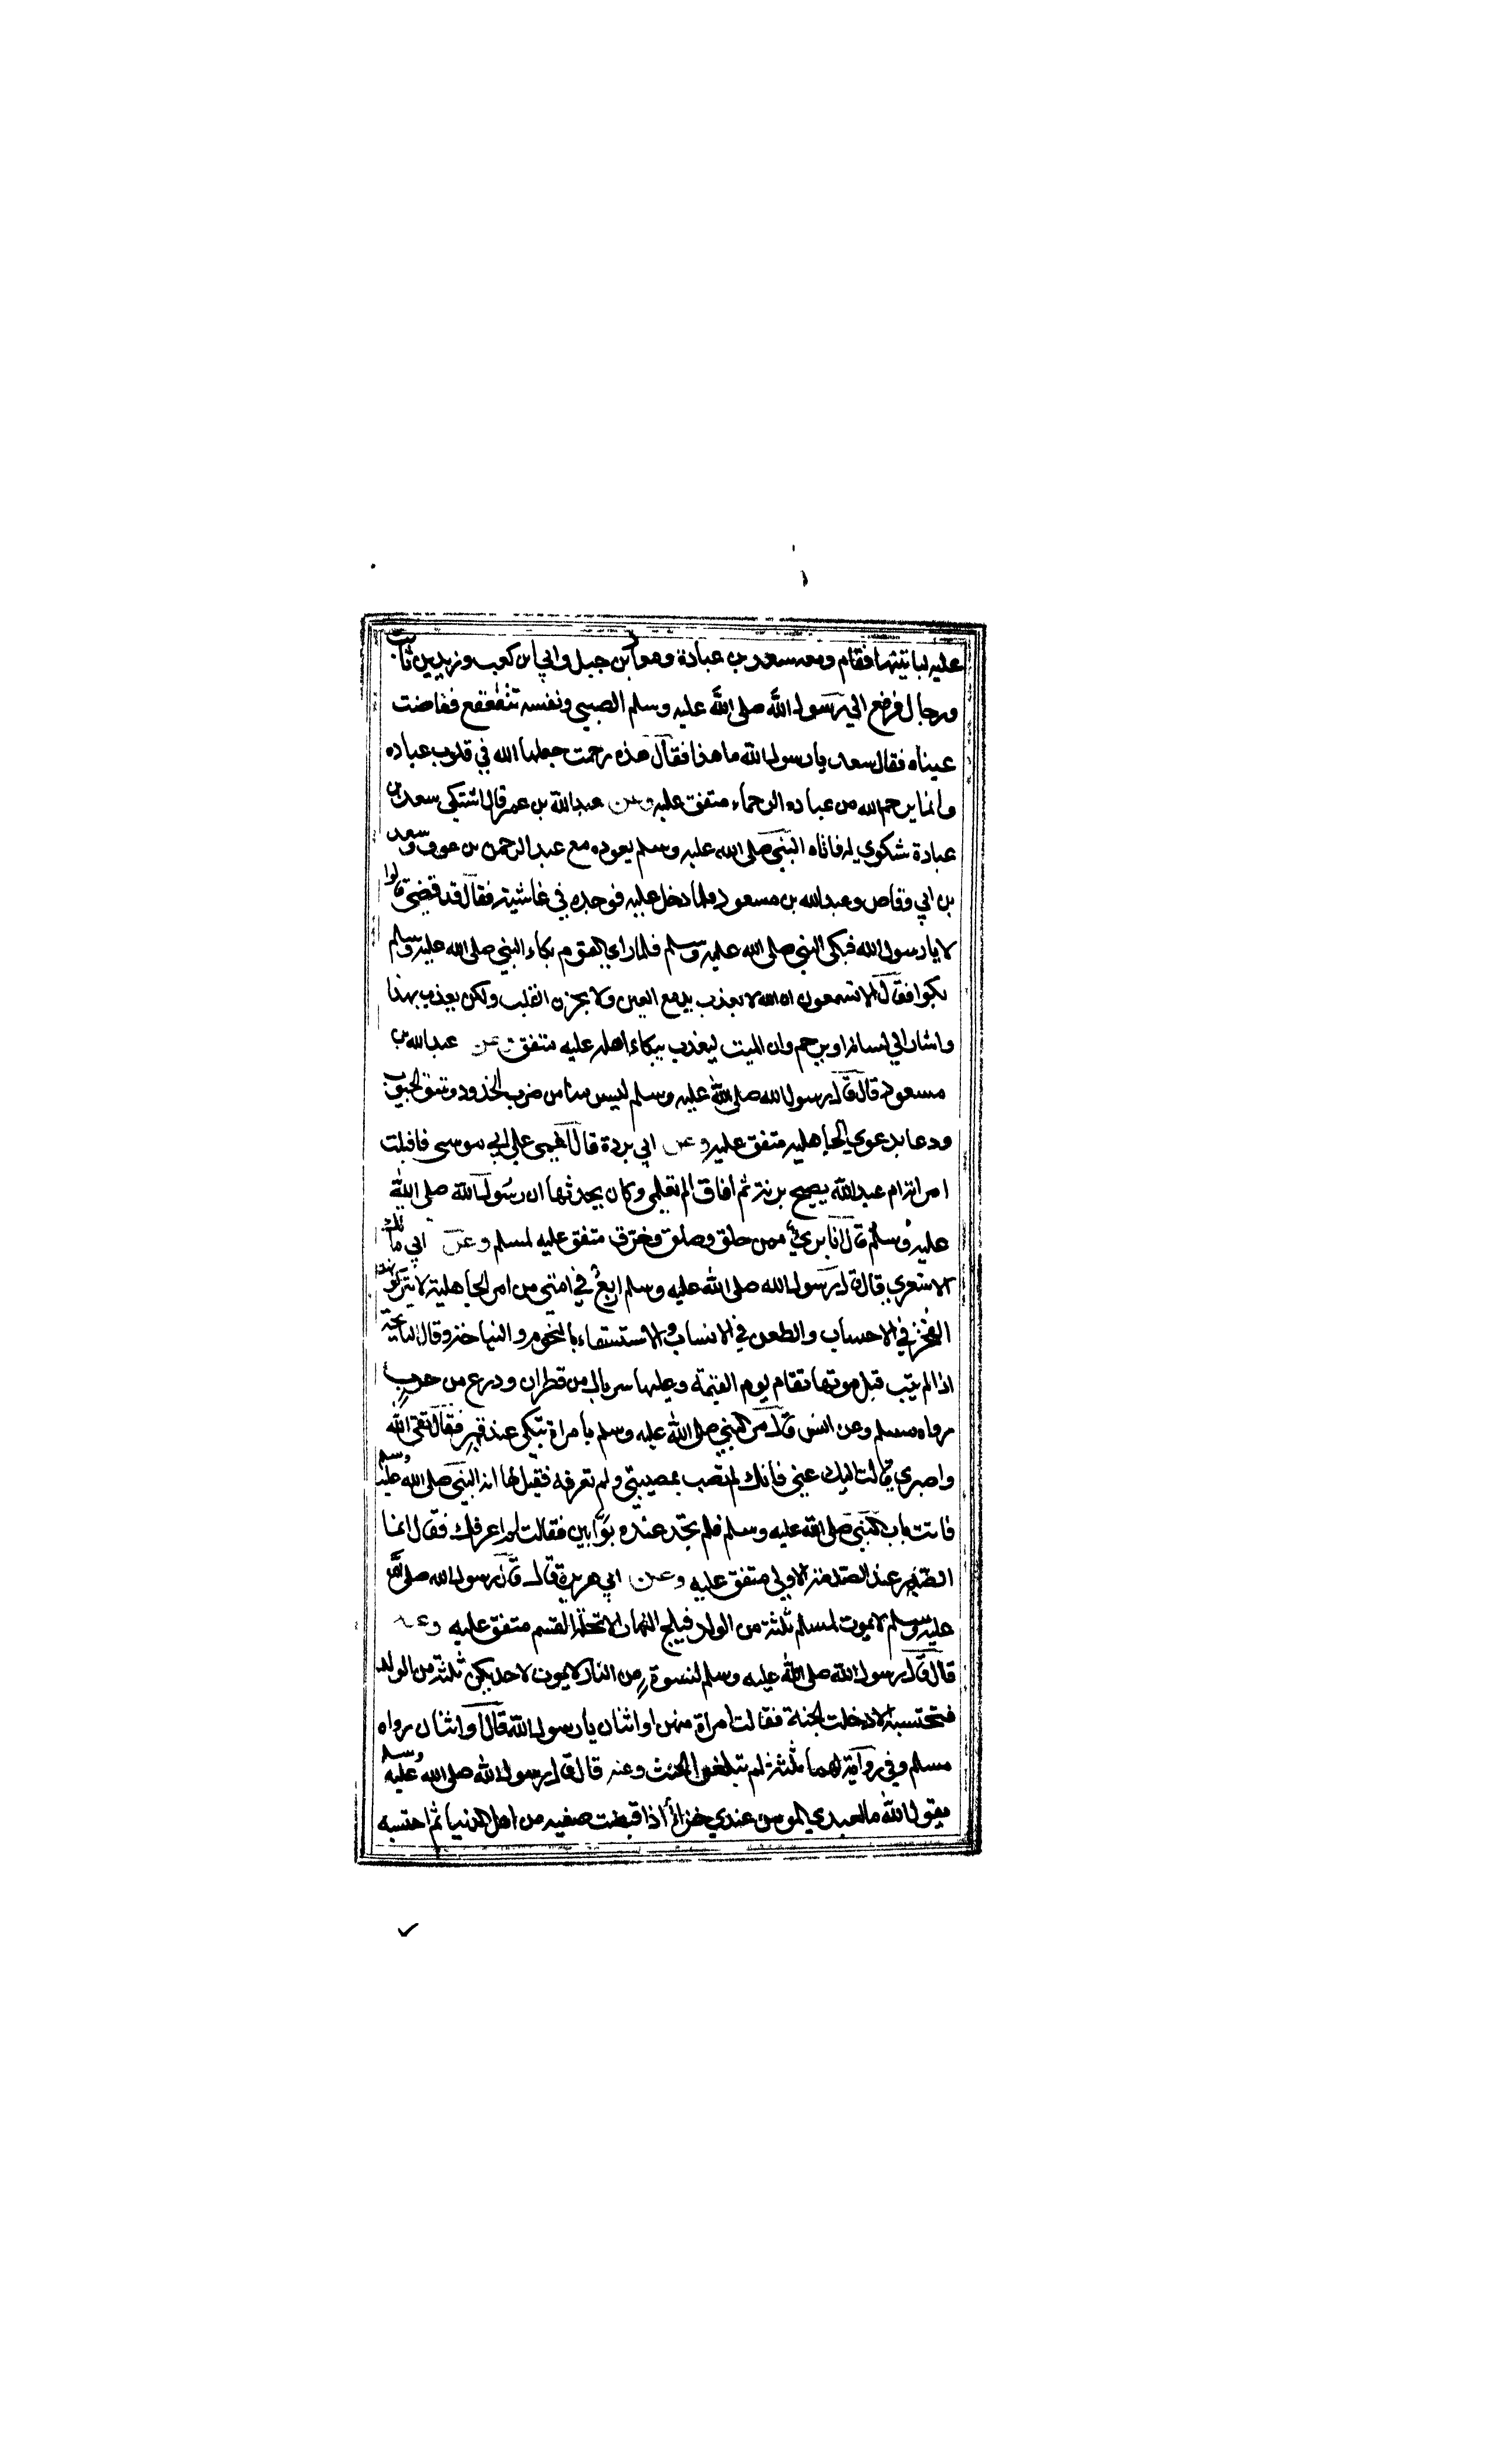 عليه لياتينها فقام ومعه سعد بن عبادة ومعاذ بن جبل وابي ابن كعب وزيد بن ثابت
ورجال فرفع الي رسول الله صلى الله عليه وسلم الصبي ونفسه تتقعقع ففاضت
عيناه فقال سعد يا رسول الله ما هذا فقال هذه رحمت جعلها الله في قلوب عباده
وانما يرحم الله من عباده الرحماء متفق عليه وعن عبد الله بن عمر قال اشتكى سعد بن
عبادة شكوي له فاتاه النبي صلى الله عليه وسلم يعوده مع عبد الرحمن بن عوف وسعد
بن ابي وقاص وعبد الله بن مسعود فلما دخل عليه فوجده في غاشية فقال قد قضى قالوا
لا يا رسول الله فبكى النبي صلى الله عليه وسلم فلما راى القوم بكاء النبي صلى الله عليه وسلم
بكوا فقال الا تسمعون ان الله لا يعذب بدمع العين ولا بحزن القلب ولكن يعذب بهذا
واشار الي لسانه او يرحم وان الميت ليعذب ببكاء اهله عليه متفق وعن عبد الله بن
مسعود قال قال رسول الله صلى الله عليه وسلم ليس منا من ضرب الخدود وشق الجيوب
ودعا بدعوي الجاهليه متفق عليه وعن ابي بردة قال اغمى على ابي موسى فاقبلت
امراته ام عبد الله يصيح برنة ثم افاق الم تعلمي وكان يحدثها ان رسول الله صلى الله
عليه وسلم قال انا بريء ممن حلق وصلق وخرق متفق عليه لمسلم وعن ابي مالك
الاشعري قال قال رسول الله صلى الله عليه وسلم اربع في امتي من امر الجاهلية لا يتركونهن
الفخر في الاحساب والطعن في الانساب والاستسقاء بالنجوم والنياحة وقال النايحة
اذا لم يتب قبل موتها تقام يوم القيمة وعليها سربال من قطران ودرع من جرب
رواه مسلم وعن انس قال مر النبي صلى الله عليه وسلم بامراة تبكى عند قبر فقال اتقي الله
واصبري قالت اليك عني فانك لم تصب بمصيبتي ولم تعرفه فقيل لها انه النبي صلى الله عليه وسلم
فاتت باب النبي صلى الله عليه وسلم فلم تجد عنده بوابين فقالت لم اعرفك فقال انما
الصبر عند الصدمة الاولى متفق عليه وعن ابي هريرة قال قال رسول الله صلى الله
عليه وسلم لا يموت لمسلم ثلثة من الولد فيلج النار الا تحلة القسم متفق عليه وعنه
قال قال رسول الله صلى الله عليه وسلم لنسوة من الانصار لا يموت لاحديكن ثلثة من الولد
فتحتسبه الا دخلت الجنة فقالت امراة منهن او اثنان يا رسول الله قال او اثنان رواه
مسلم وفي رواية لهما ثلثة لم تبلغوا الحنث وعنه قال قال رسول الله صلى الله عليه وسلم
يقول الله ما لعبدي المومن عندي جزاء اذا قبضت صفيه من اهل الدنيا ثم احتسبه